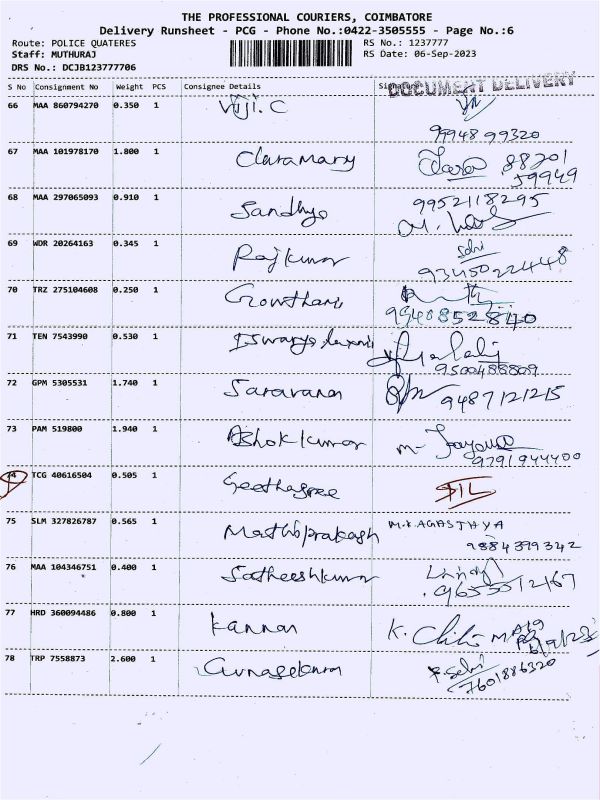 THE PROFESSIONAL COURIERS, COIMBATORE
Delivery Runsheet - PCG - Phone No.:0422-3505555 - Page No.:6
Route: POLICE QUATERES RS No.: 1237777
Staff: MUTHURAJ RS Date: 06-Sep-2023
DRS No.: DCJB123777706
DOCUMENT DELIVERY
S No Consignment No Weight PCS Consignee Details
66 MAA 860794270 0.350 1 Viji.C
99948 99320
67 MAA 101978170 1.800 1 Claramary Clara 88701
59949
68 MAA 297065093 0.910 1 Sandhya 9952118295
69 WDR 20264163 0.345 1 Rajkumar Selvi
9345022448
70 TRZ 275104608 0.250 1 Gowtham
9940852840
71 TEN 7543990 0.530 1
9500486809
72 GPM 5305531 1.740 1 Saravanan 9487121215
73 PAM 519800 1.940 1 Ashok kumar m-
9791944400
74 TCG 40616504 0.505 1 Geethasree SIL
75 SLM 327826787 0.565 1 Mathioprakash M.K.AGASTHYA
9884399342
76 MAA 104346751 0.400 1 Satheeshkumar
9655012167
77 HRD 360094486 0.800 1 Kannan K.
78 TRP 7558873 2.600 1 Gunasekaran P. Selvi
7601886320